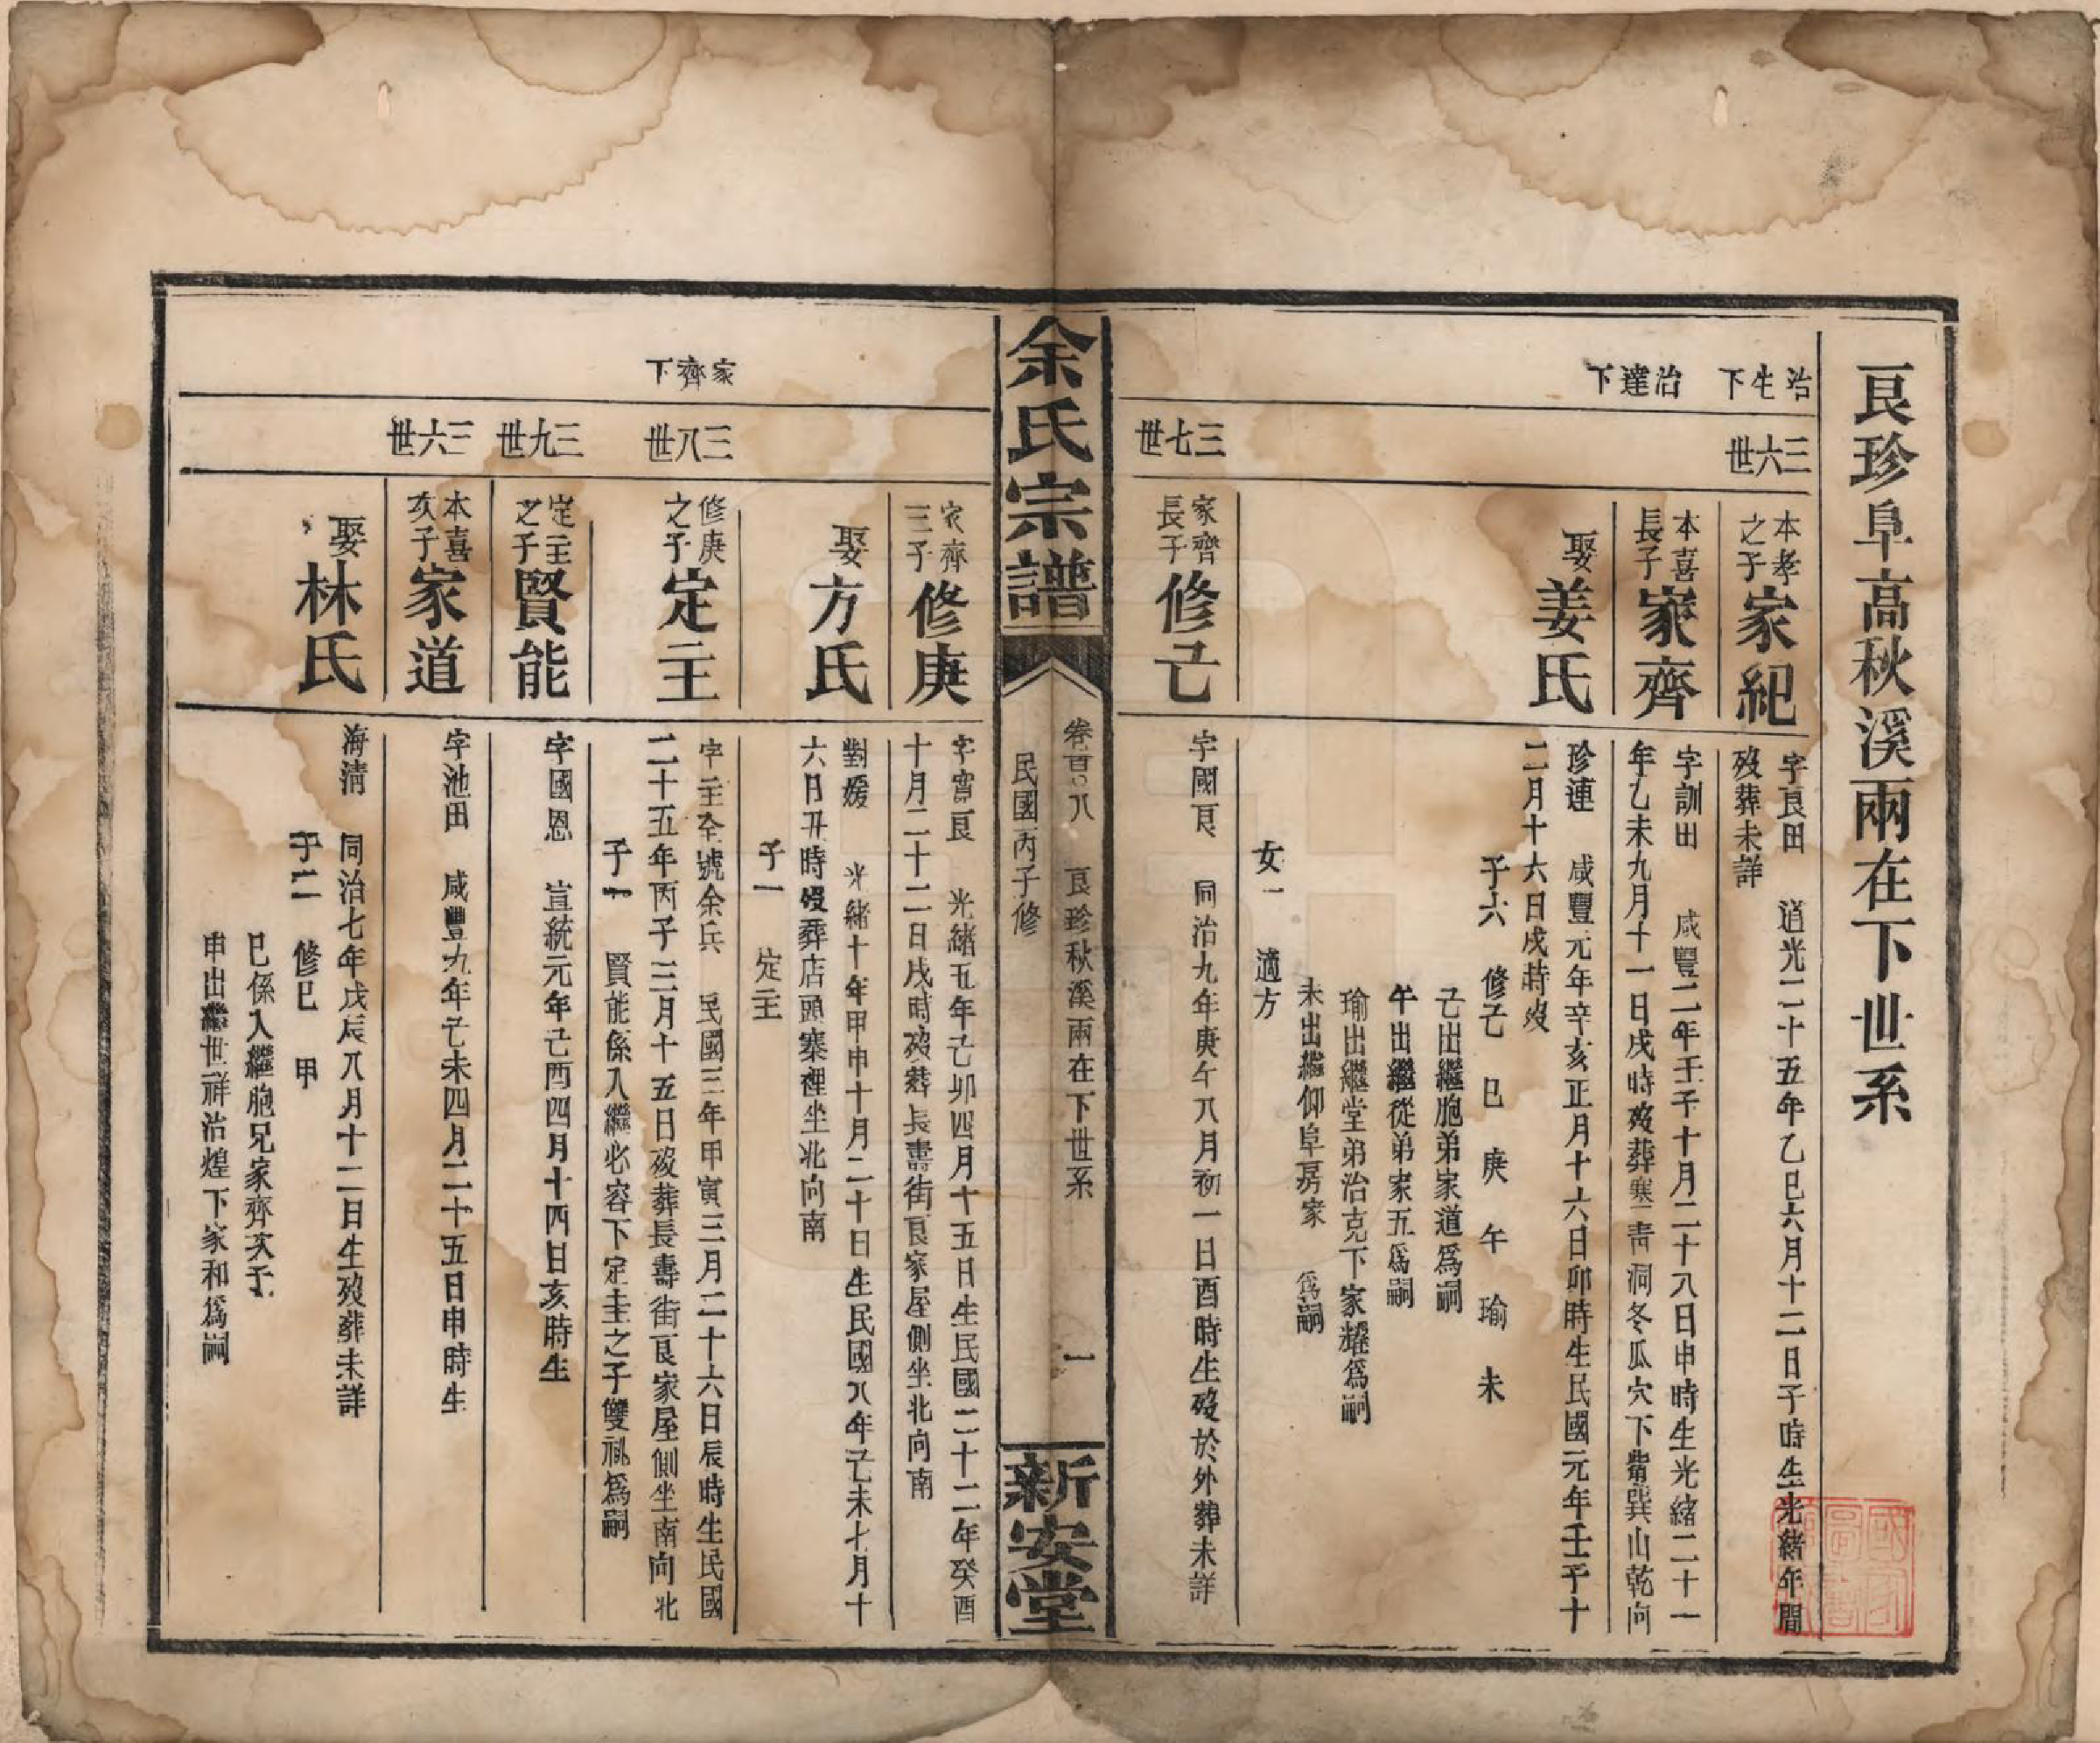 良珍阜高秋溪兩在下世系
治生下
三六世
本孝之子
家紀
字良田 道光二十五年乙巳六月十二日子時生光緒年間
歿葬未詳
治達下
本喜長子
家齊
字訓田 咸豐二年壬子十月二十八日申時生光緒二十一
年乙未九月十一日戌時歿葬寒青洞冬瓜穴下觜巽山乾向
娶
姜氏
珍連 咸豐元年辛亥正月十六日卯時生民國元年壬子十
二月十六日戌時歿
子六 修己 巳 庚 午 瑜 未
己出繼胞弟家道爲嗣
午出繼從弟家五爲嗣
瑜出繼堂弟治克下家耀爲嗣
未出繼仰阜房家 爲嗣
女一 適方
三七世
家齊長子
修己
字國良 同治九年庚午八月初一日酉時生歿於外葬未詳
余氏宗譜
卷首八 良珍秋溪兩在下世系 一
民國丙子修
新安堂
家齊三子
修庚
字賓良 光緒五年己卯四月十五日生民國二十二年癸酉
十月二十二日戌時歿葬長壽街良家屋側坐北向南
娶
方氏
對媛 光緒十年甲申十月二十日生民國八年己未七月十
六日丑時歿葬店頭寨裡坐北向南
子一 定主
家齊下
三八世
修庚之子
定主
字主全號余兵 民國三年甲寅三月二十六日辰時生民國
二十五年丙子三月十五日歿葬長壽街良家屋側坐南向北
子一 賢能係入繼必容下定圭之子雙祧爲嗣
三九世
定主之子
賢能
字國恩 宣統元年己酉四月十四日亥時生
三六世
本喜次子
家道
字池田 咸豐九年己未四月二十五日申時生
娶
林氏
海清 同治七年戊辰八月十二日生歿葬未詳
子二 修巳 甲
巳係入繼胞兄家齊次子
申出繼世祥治煌下家和爲嗣